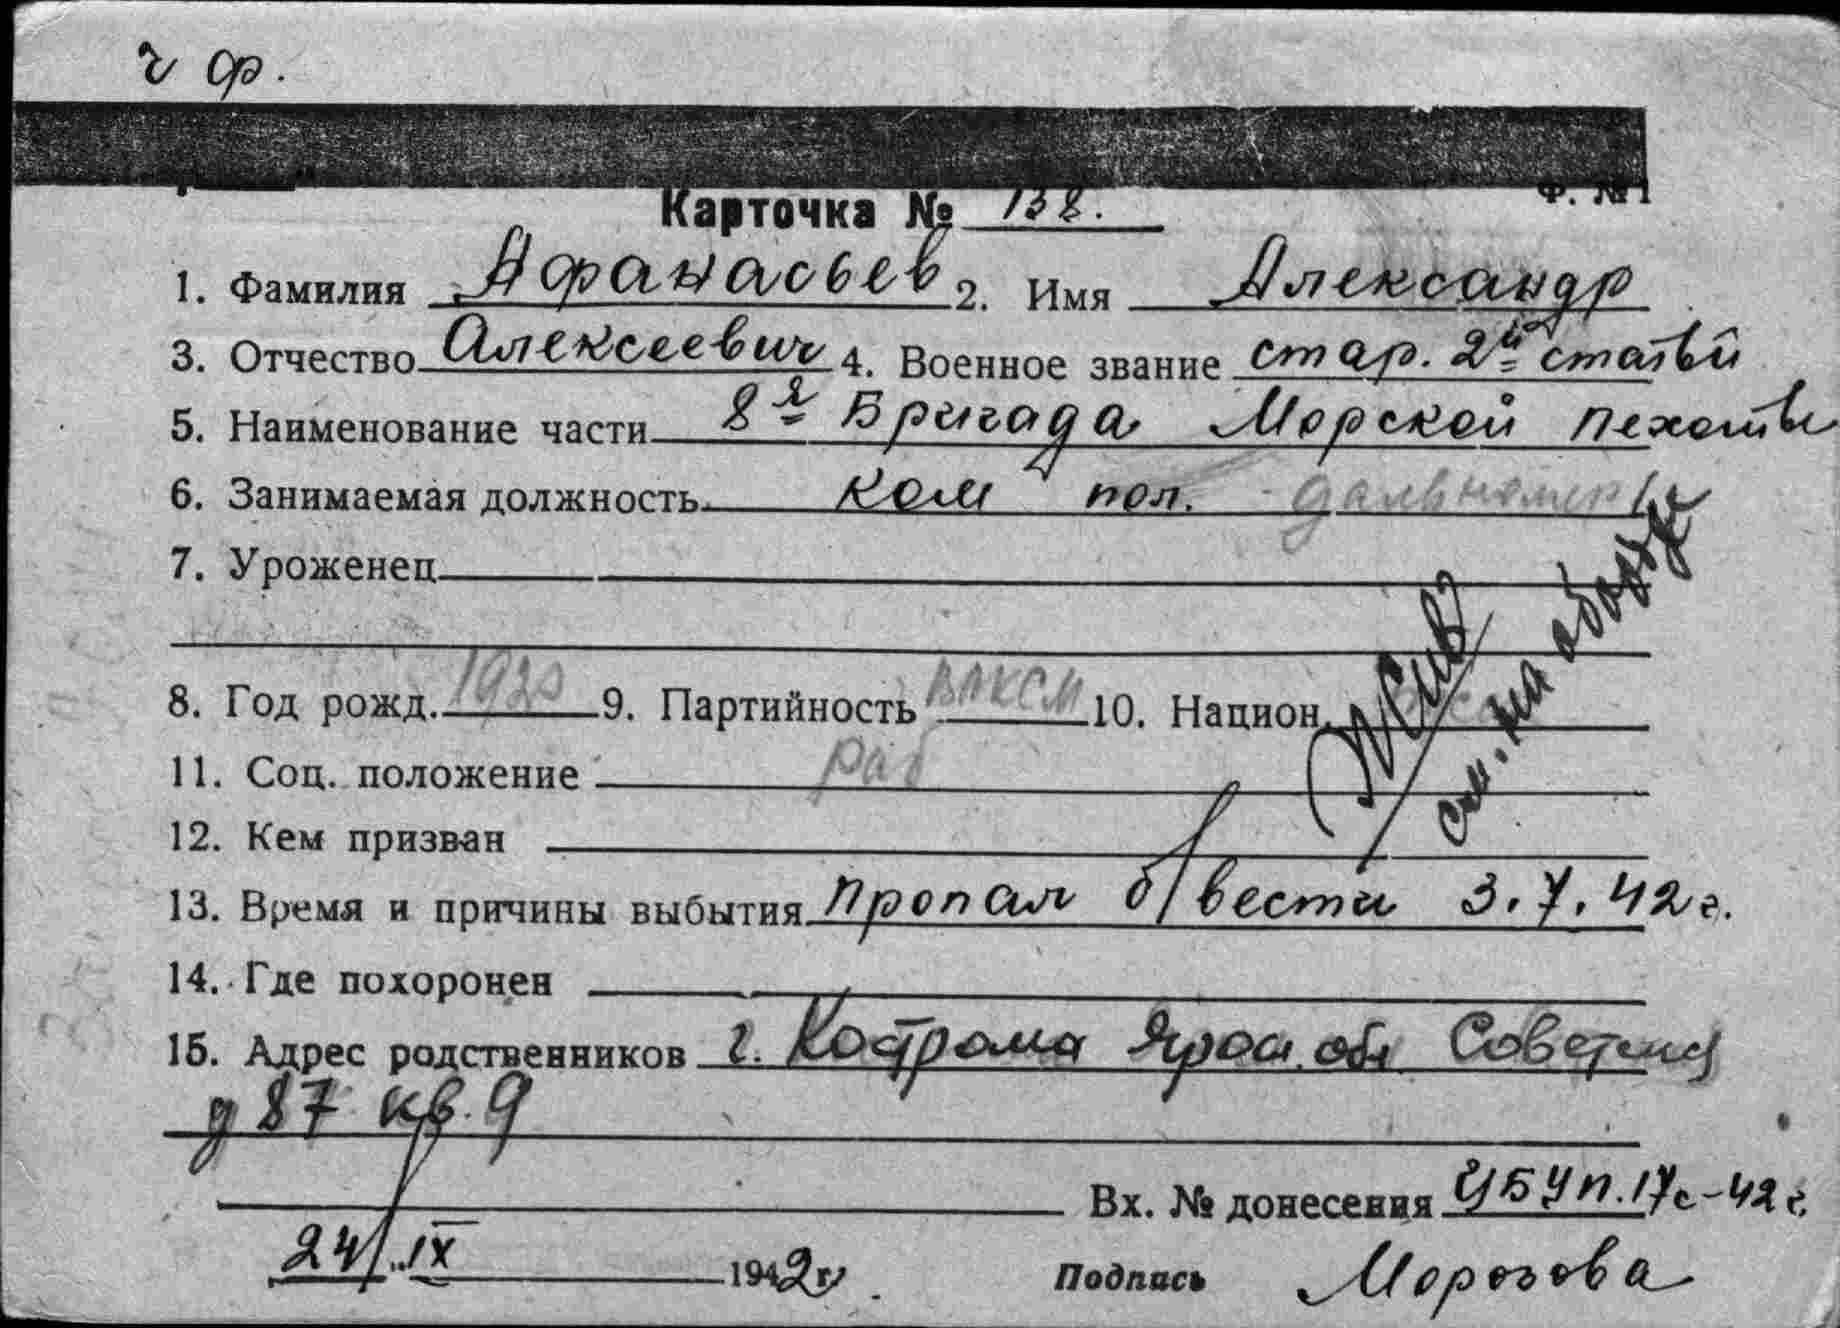 ч ф.
Ф. №1
Карточка № 138.
1. Фамилия Афанасьев 2. Имя Александр
3. Отчество Алексеевич 4. Военное звание стар. 2й статьи
5. Наименование части 8я Бригада Морской пехоты
6. Занимаемая должность ком пол. дальномер
7. Уроженец
8. Год рожд. 1920 9. Партийность ВЛКСМ 10. Национ.
Жив
см. на обороте
11. Соц. положение раб
12. Кем призван
13. Время и причины выбытия пропал б/вести 3.7.42 г.
14. Где похоронен
15. Адрес родственников г. Кострома Яросл. обл Советская
д 87 кв. 9
Вх. № донесения УБУп.17с-42 г.
24/IX 1942 г. Подпись Морозова